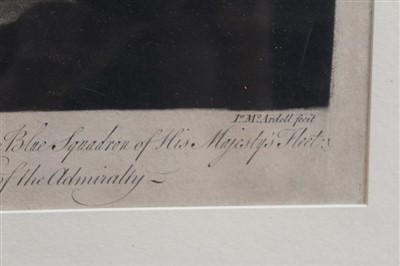 Jas. McArdell fecit
Blue Squadron of His Majesty's Fleet
of the Admiralty